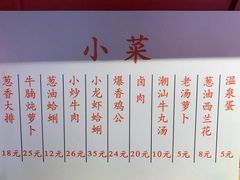 小菜
葱香大排 18元
牛腩炖萝卜 25元
葱油蛤蜊 12元
小炒牛肉 26元
小龙虾蛤蜊 35元
爆香鸡公 24元
卤肉 20元
潮汕牛丸汤 10元
老汤萝卜 5元
葱油西兰花 8元
温泉蛋 5元